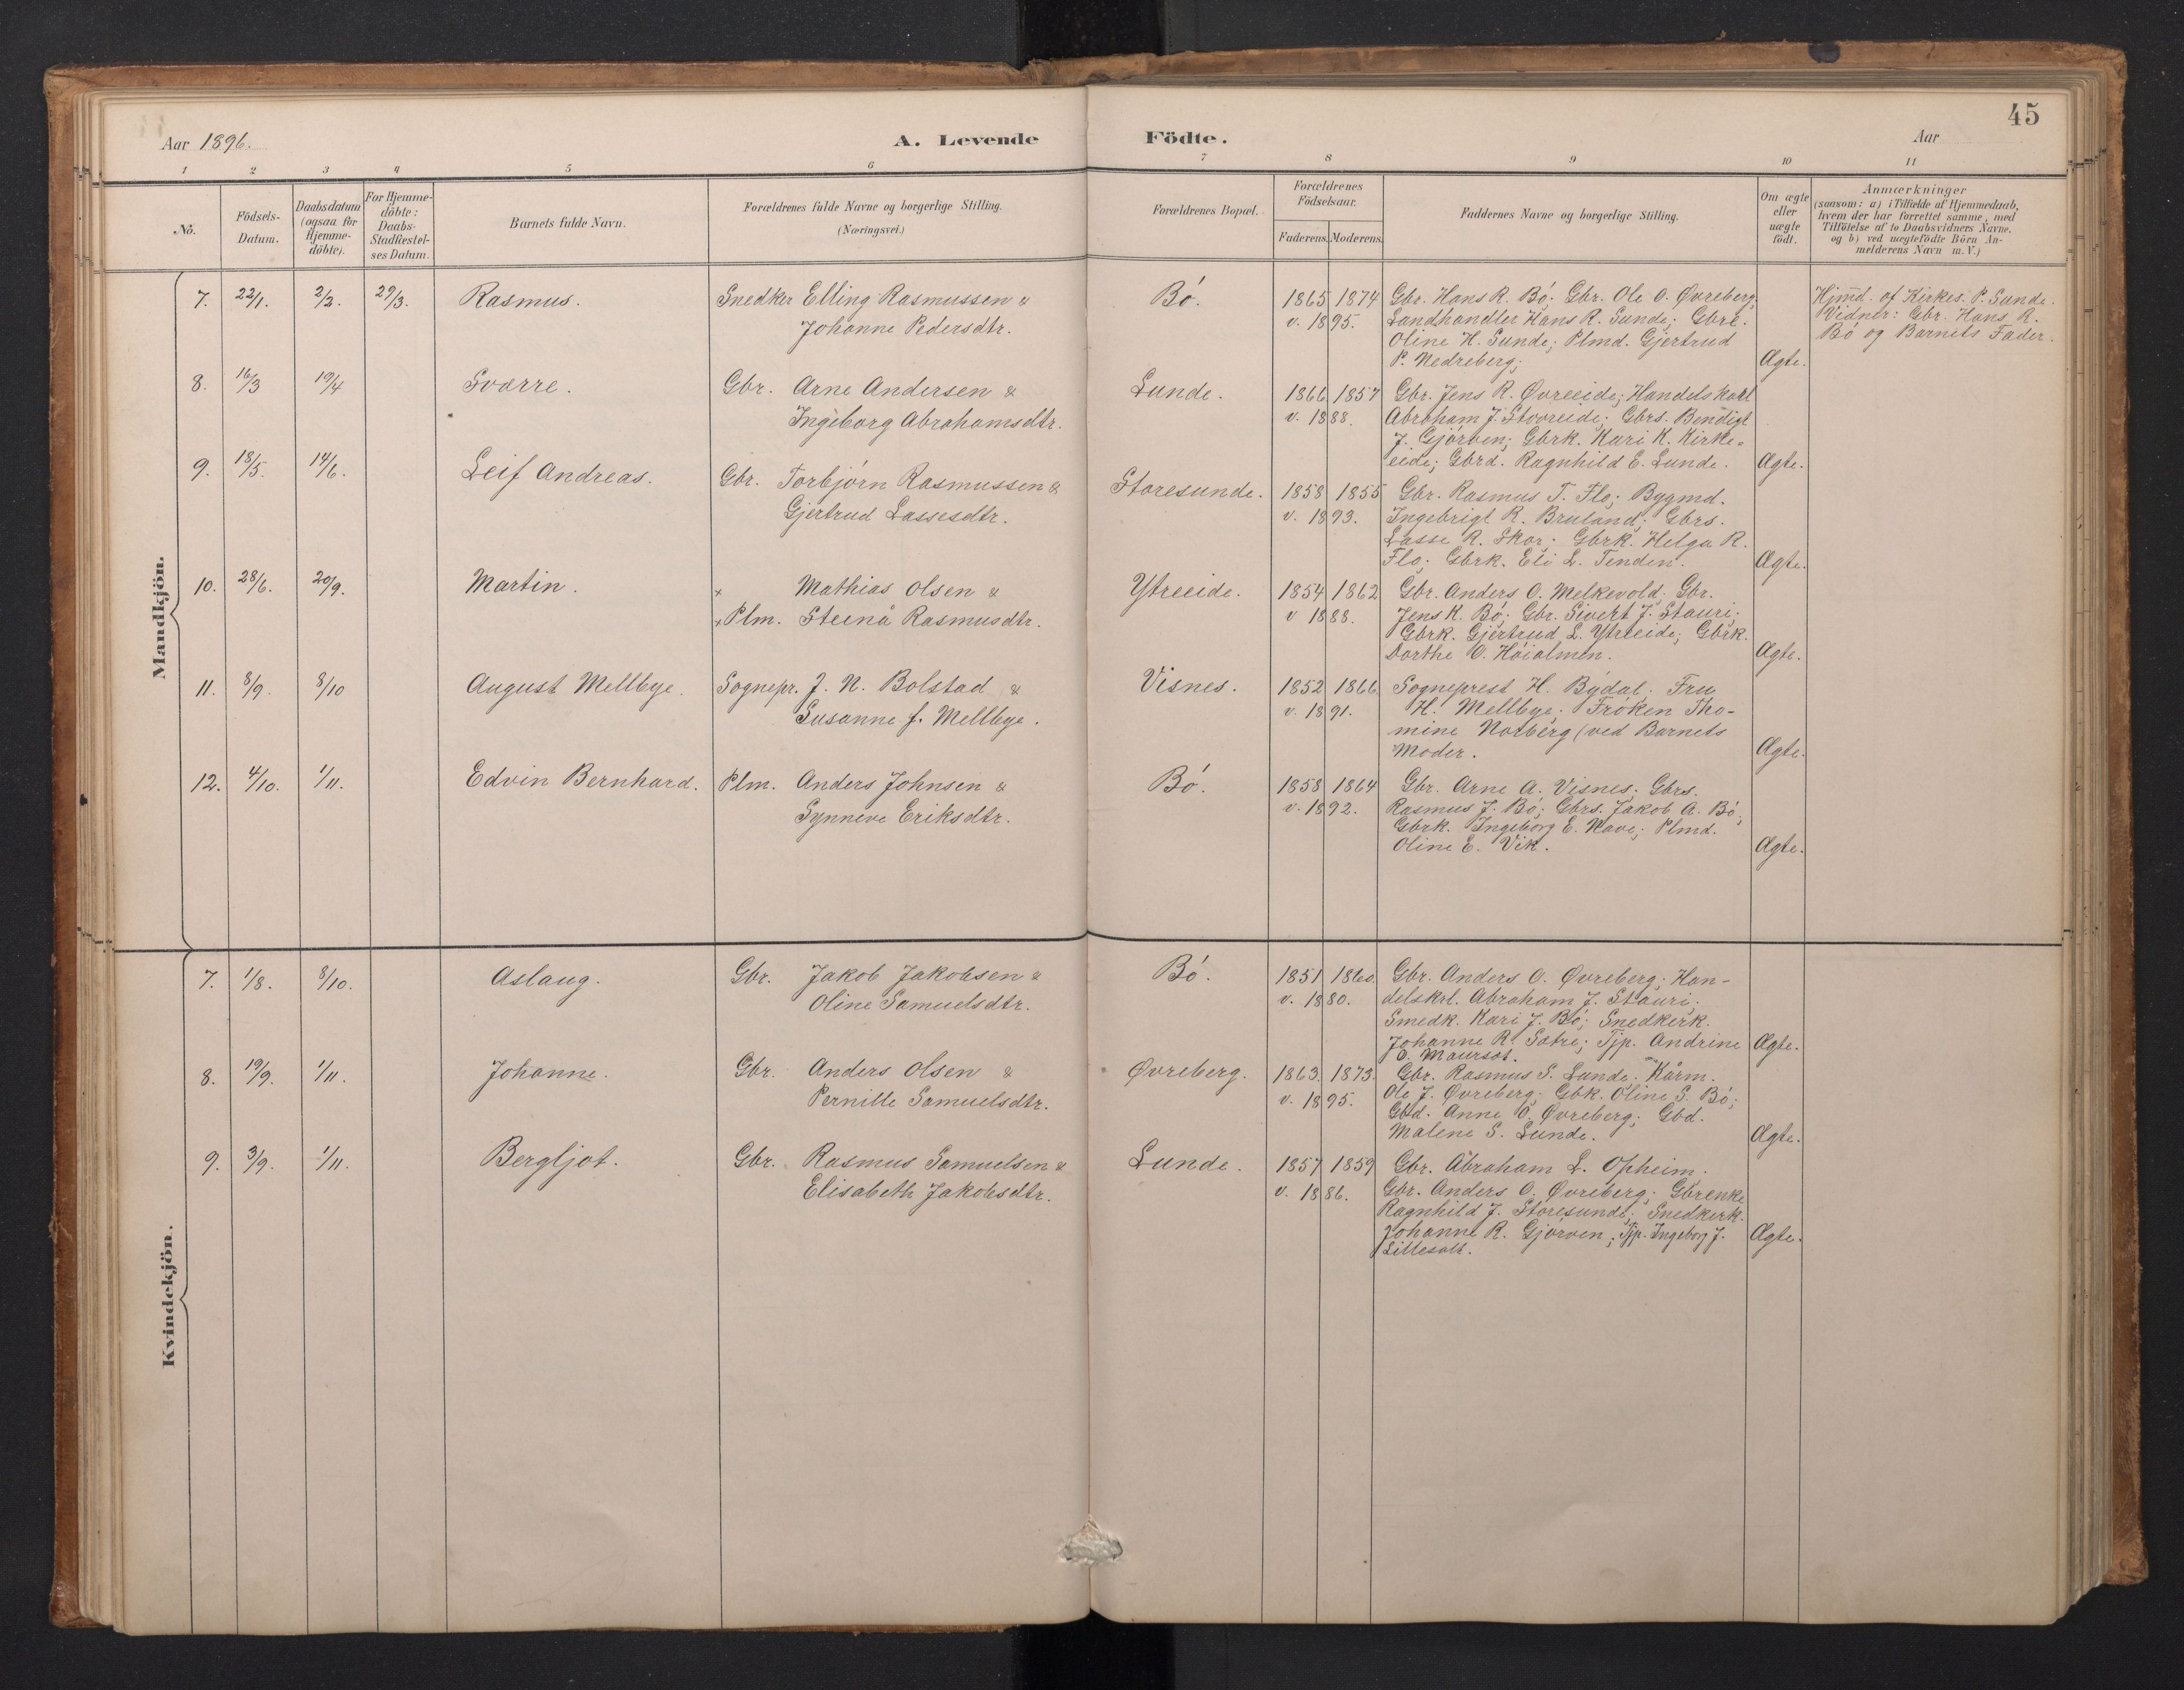 Aar 1896.
A. Levende Födte.
Aar
45
1 2 3 4 5 6 7 8 9 10 11
No.
Födsels-Datum.
Daabsdatum (ogsaa för Hjemme-döbte).
For Hjemme-döbte: Daabs-Stadfæstel-ses Datum.
Barnets fulde Navn.
Forældrenes fulde Navne og borgerlige Stilling.
(Næringsvei.)
Forældrenes Bopæl.
Forældrenes Födselsaar.
Faderens. Moderens.
Faddernes Navne og borgerlige Stilling.
Om ægte eller uægte födt.
Anmærkninger
(saasom: a) i Tilfælde af Hjemmedaab,
hvem der har forrettet samme, med
Tilföielse af to Daabsvidners Navne.
og b) ved uægtefödte Börn An-
melderens Navn m.V.)
Mandkjön.
7. 22/1. 2/2. 29/3. Rasmus. Snedker Elling Rasmussen & Bö. 1865 1874 Gbr. Hans R. Bö; Gbr. Ole O. Øvreberg; Hjmd. af Kirkes. P. Sunde.
Johanne Pedersdtr. v. 1895. Landhandler Hans R. Sunde; Gbre. Vidner: Gbr. Hans R.
Oline H. Sunde; Plmd. Gjertrud Bö og Barnets Fader.
P. Nedreberg; Ægte.
8. 16/3 19/4 Sverre. Gbr. Arne Andersen & Lunde. 1866 1857 Gbr. Jens R. Øvreeide; Handelskarl
Ingeborg Abrahamsdtr. v. 1888. Abraham J. Storeeide; Gbrs. Bendigt
J. Gjörven; Gbrk. Kari K. Kirke-
eide; Gbrd. Ragnhild E. Lunde. Ægte.
9. 18/5. 14/6. Leif Andreas. Gbr. Torbjörn Rasmussen & Storesunde. 1858 1855 Gbr. Rasmus T. Flo; Bygmd.
Gjertrud Lassesdtr. v. 1893. Ingebrigt R. Bruland; Gbrs.
Lasse R. Skor; Gbrk. Helga R.
Flo; Gbrk. Eli L. Tenden. Ægte.
10. 28/6. 20/9. Martin. × Mathias Olsen & Ytreeide. 1854 1862 Gbr. Anders O. Melkevold; Gbr.
× Plm. Steina Rasmusdtr. v 1888. Jens K. Bö; Gbr. Sivert J. Stauri;
Gbrk. Gjertrud L. Ytreeide; Gbrk.
Dorthe O. Höialmen. Ægte.
11. 8/9. 8/10 August Mellbye. Sognepr. J. N. Bolstad & Visnes. 1852 1866 Sogneprest H. Bydal. Fru
Susanne f. Mellbye. v. 1891. H. Mellbye; Fröken Tho-
mine Norberg (ved Barnets
Moder. Ægte.
12. 4/10. 1/11. Edvin Bernhard. Plm. Anders Johnsen & Bö. 1858 1864 Gbr. Arne A. Visnes; Gbrs.
Synneve Eriksdtr. v. 1892. Rasmus J. Bö; Gbrs. Jakob A. Bö;
Gbrk. Ingeborg E. Nave; Plmd.
Oline E. Vik. Ægte.
Kvindekjön.
7. 1/8. 8/10. Aslaug. Gbr. Jakob Jakobsen & Bö. 1851 1860. Gbr. Anders O. Øvreberg; Han-
Oline Samuelsdtr. v. 1880. delskrl. Abraham J. Stauri;
Smedk. Kari J. Bö; Snedkerk.
Johanne R. Sætre; Tjp. Andrine Ægte.
O. Maurset.
8. 19/9. 1/11. Johanne. Gbr. Anders Olsen & Øvreberg. 1863. 1873. Gbr. Rasmus S. Lunde. Kårm.
Pernille Samuelsdtr. v. 1895. Ole J. Øvreberg; Gbk. Oline S. Bö;
Gbd. Anne O. Øvreberg; Gbd.
Malene S. Lunde. Ægte.
9. 3/9. 1/11. Bergljot. Gbr. Rasmus Samuelsen & Lunde. 1857 1859 Gbr. Abraham L. Opheim.
Elisabeth Jakobsdtr. v. 1886. Gbr. Anders O. Øvreberg; Gbrenke
Ragnhild J. Storesunde; Snedkerk.
Johanne R. Gjörven; Tjp. Ingeborg J. Ægte.